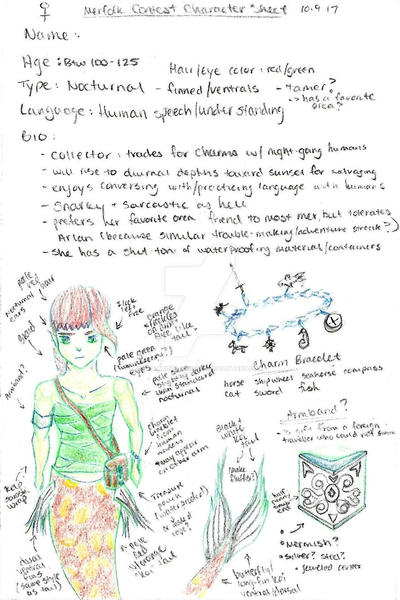 ♀ Merfolk Contest Character Sheet 10.9.17
Name:
Age: Btw 100-125
Hair/Eye color: red/green
Type: Nocturnal - finned/ventrals - tamer?
-> has a favorite area?
Language: Human speech/understanding
BIO:
- collector: trades for charms w/ night-gang humans
- will rise to diurnal depths toward sunset for salvaging
- enjoys conversing with/practicing language with humans
- snarky + sarcastic as hell
- prefers her favorite area, friend to most mer, but tolerates
Arlan (because similar trouble-making/adventure streak?)
- she has a shit-ton of waterproofing material/containers
pale red hair
nocturnal ears
braid
Armband?
slick left free
orange freckles
like tail?
pale green
eyes
pale skin
slightly darker
than standard
nocturnal
charm
bracelet
from
human
may appear
on other arm
treasure
pouch
pale red
w/orange
koi tail
kelp
smooth
wrap
dual
ventral
fins
(same style
as tail)
Black +
white
koi
tail
butterfly/
long-fin koi
ventral/dorsal
Charm Bracelet
horse shipwheel seahorse compass
cat sword fish
Armband?
from a foreign
traveler who could not swim
• Mermish?
• silver? steel?
• jeweled center